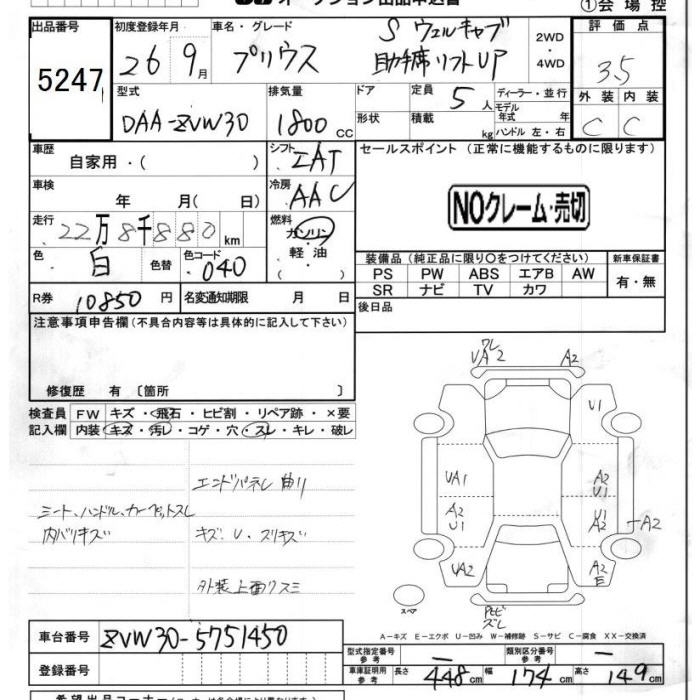 ①会場控
出品番号 初度登録年月 車名・グレード S ウェルキャブ 2WD ・ 4WD 評価点
5247 26 9月 プリウス 助手席リフトUP 3.5
型式 排気量 ドア 定員 5人 ディーラー・並行 外装 内装
DAA-ZVW30 1800 CC 形状 積載 kg モデル年式 年 ハンドル 左・右 C C
車歴 自家用・( ) シフト IAT セールスポイント (正常に機能するものに限ります)
車検 年 月( 日) 冷房 AAC
NOクレーム・売切
走行 22万8千880km 燃料 ガソリン ・軽油 ・( )
色 白 色替 色コード 040
装備品(純正品に限り○をつけてください) 新車保証書
PS PW ABS エアB AW 有・無
SR ナビ TV カワ
R券 10850円 名変通知期限 月 日 後日品
注意事項申告欄(不具合内容等は具体的に記入して下さい)
修復歴 有〔箇所 〕
検査員 FW キズ・飛石・ヒビ割・リペア跡・×要
記入欄 内装 キズ・汚レ・コゲ・穴・スレ・キレ・破レ
エンドパネル曲リ
シート、ハンドル、カーペットスレ
内バリキズ キズ、U・スリキズ
外装上面クスミ
UA2 A2
U1
UA1 A2 U1
A2 U1 U1 A2 A2
UA2 A2 E
スペア
A-キズ E-エクボ U-凹み W-補修跡 S-サビ C-腐食 XX-交換済
車台番号 ZVW30-5751450
登録番号
型式指定番号 参考 — 類別区分番号 参考 —
車庫証明用 参考 長さ 448cm 幅 174cm 高さ 149cm